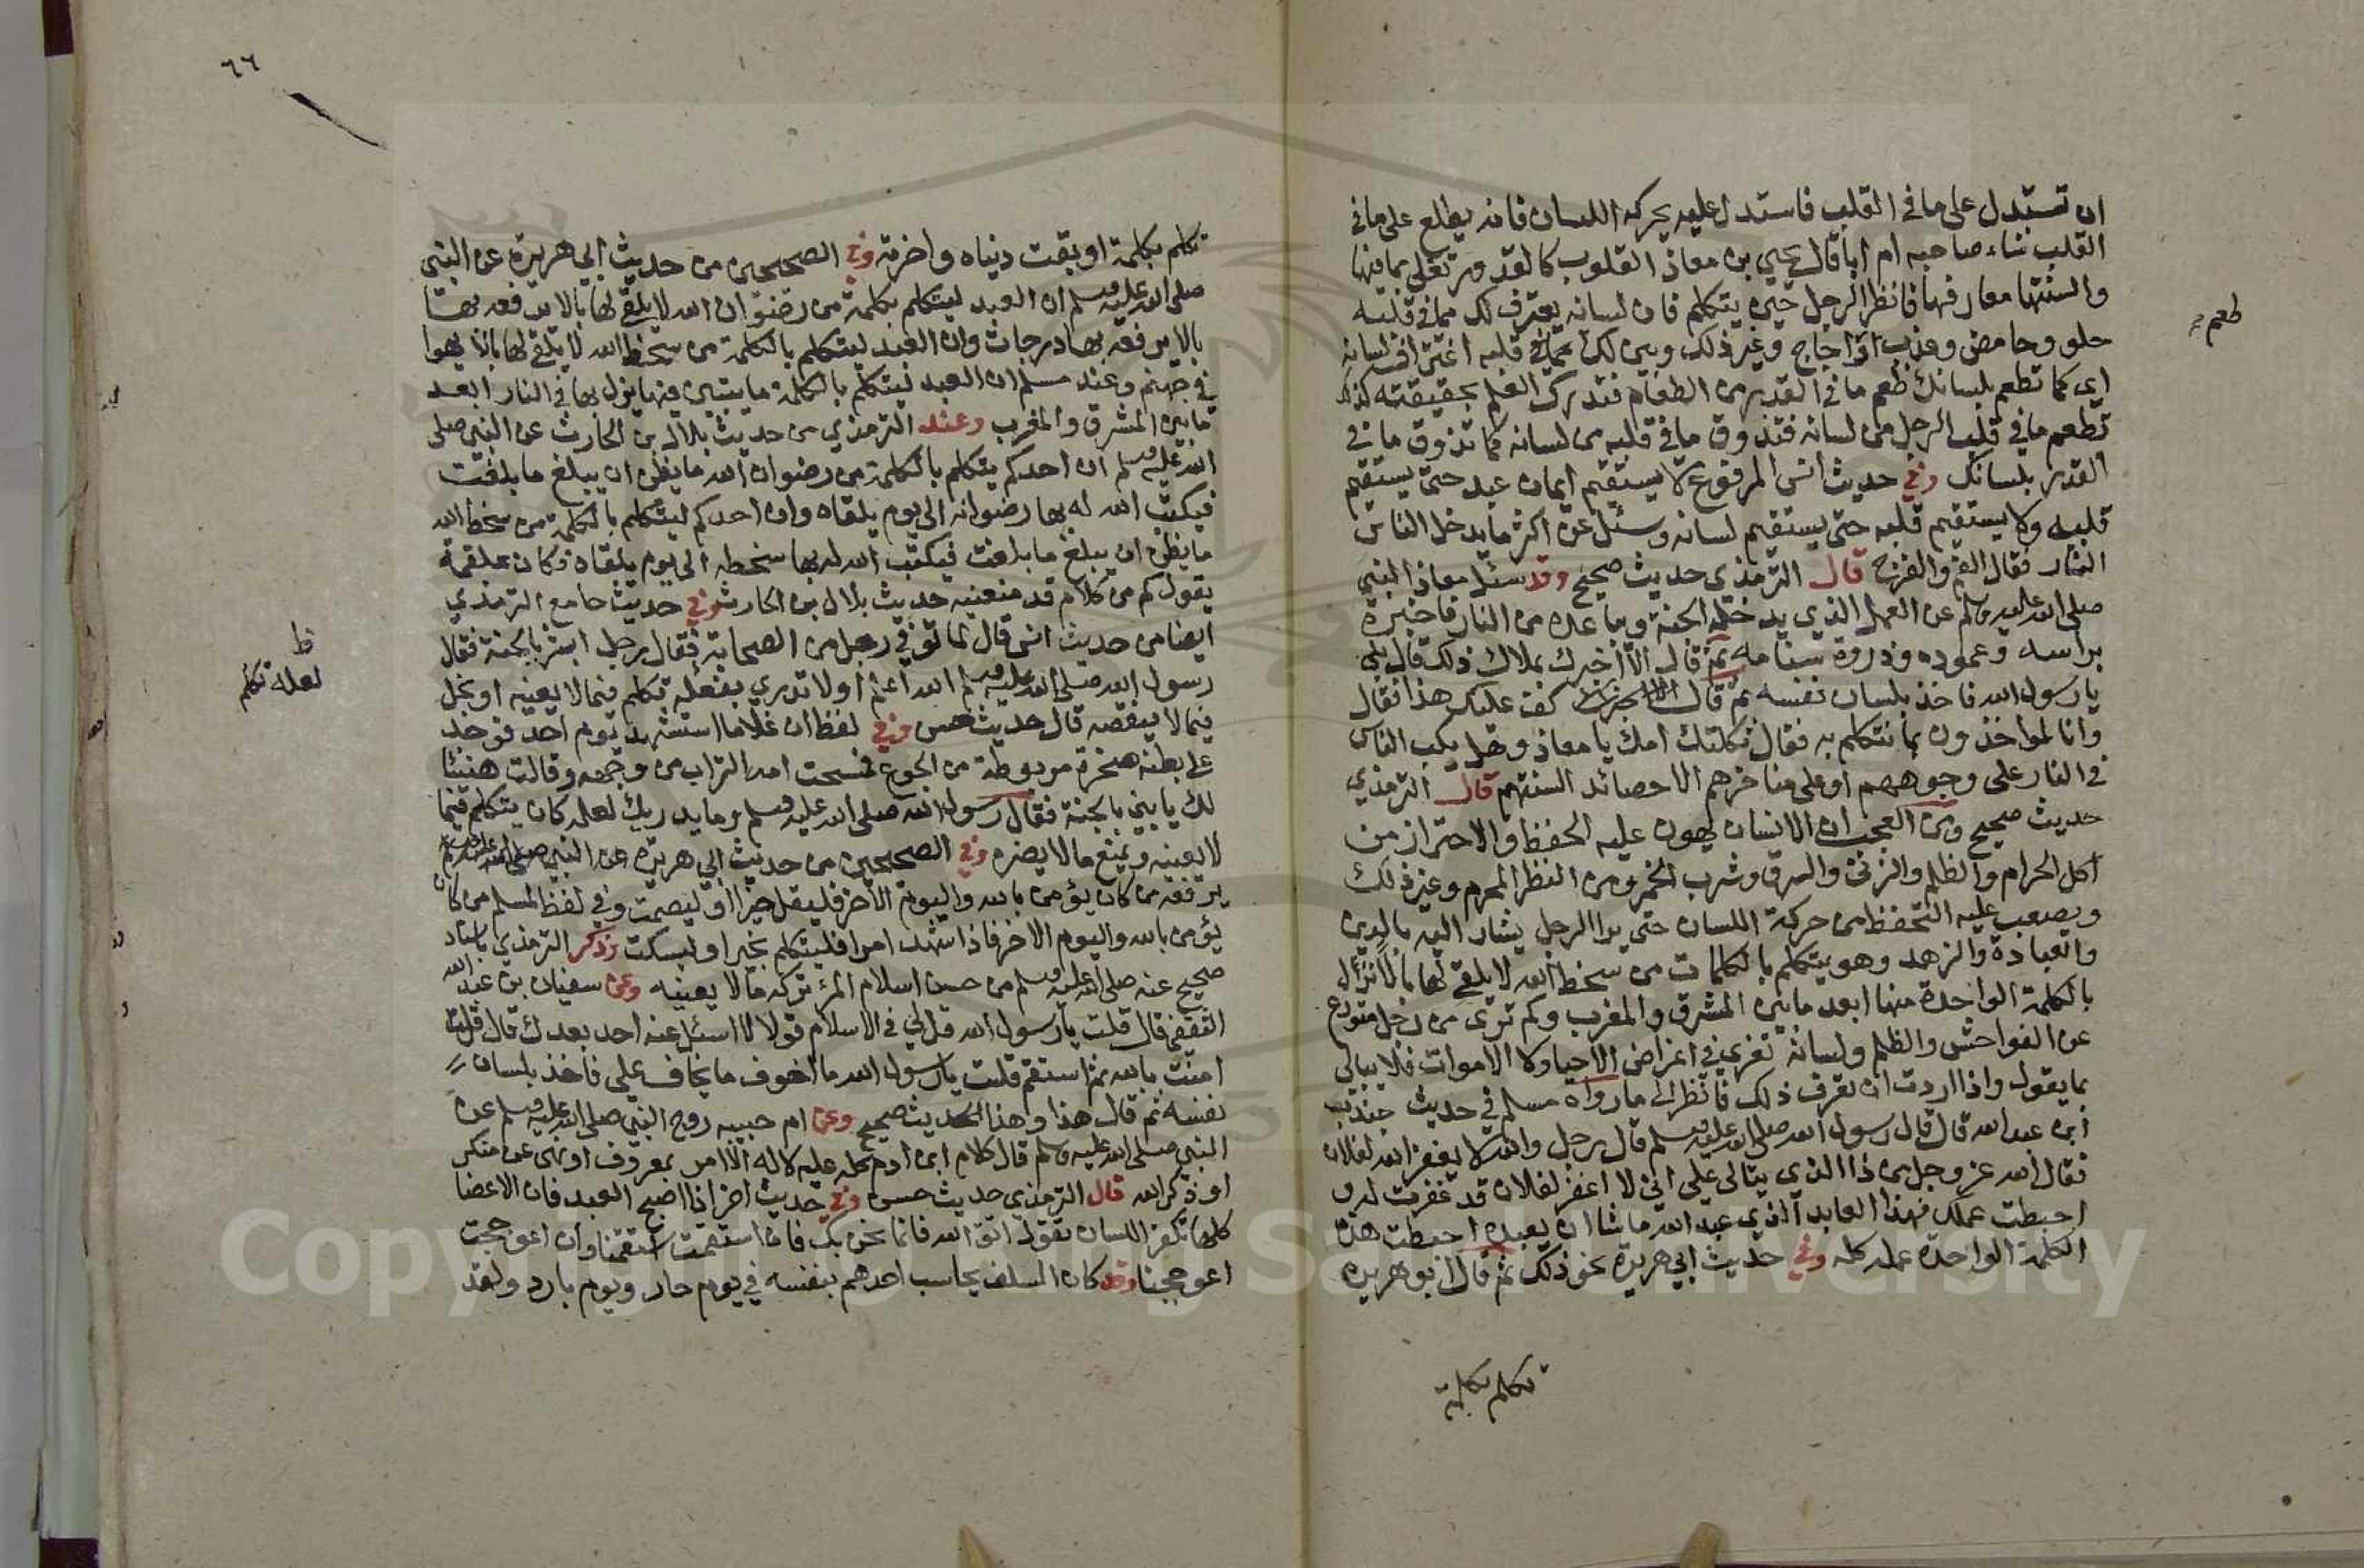 ان تستدل على ما في القلب فاستدل عليه بحركة اللسان فانه يطلع على ما في
القلب شاء صاحبه ام ابا قال يحيى بن معاذ القلوب كالقدور تغلي بما فيها
والسنتها مغارفها فانظر الرجل حين يتكلم فان لسانه يغترف لك مما في قلبه
حلو وحامض وعذب او اجاج وغير ذلك ويبين لك عما في قلبه اغتراف لسانه
اي كما تطعم بلسانك طعم ما في القدر من الطعام فتدرك العلم بحقيقته كذلك
طعم
تطعم ما في قلب الرجل من لسانه فتذوق ما في قلبه من لسانه كما تذوق ما في
القدر بلسانك وفي حديث انس المرفوع لا يستقيم ايمان عبد حتى يستقيم
قلبه ولا يستقيم قلبه حتى يستقيم لسانه وسئل عن اكثر ما يدخل الناس
النار فقال الفم والفرج قال الترمذي حديث صحيح وقد سئل معاذ النبي
صلى الله عليه وسلم عن العمل الذي يدخله الجنة ويباعده من النار فاخبره
براسه وعموده وذروة سنامه ثم قال الا اخبرك بملاك ذلك قال بلى
يا رسول الله فاخذ بلسان نفسه ثم قال كف عليك هذا فقال
وانا لمواخذون بما نتكلم به فقال ثكلتك امك يا معاذ وهل يكب الناس
في النار على وجوههم او على مناخرهم الا حصائد السنتهم قال الترمذي
حديث صحيح ومن العجب ان الانسان يهون عليه الحفظ والاحتراز من
اكل الحرام والظلم والزنى والسرق وشرب الخمر ومن النظر المحرم وغير ذلك
ويصعب عليه التحفظ من حركة اللسان حتى يرا الرجل يشار اليه بالدين
والعبادة والزهد وهو يتكلم بالكلمات من سخط الله لا يلقي لها بالا ينزل
بالكلمة الواحدة منها ابعد ما بين المشرق والمغرب وكم ترى من رجل متورع
عن الفواحش والظلم ولسانه تفري في اعراض الاحيا ولا الاموات فلا يبالي
بما يقول واذا اردت ان تعرف ذلك فانظر الى ما رواه مسلم في حديث جندب
ابن عبد الله قال قال رسول الله صلى الله عليه وسلم قال رجل والله لا يغفر الله لفلان
فقال الله عز وجل من ذا الذي يتالى علي اني لا اغفر لفلان قد غفرت له و
احبطت عملك فهذا العابد الذي عبد الله ما شا ان يعبده احبطت هذه
الكلمة الواحدة عمله كله وفي حديث ابي هريرة نحو ذلك ثم قال ابو هريرة
تكلم بكلمة
٦٦
تكلم بكلمة اوبقت دنياه واخرته وفي الصحيحين من حديث ابي هريرة عن النبي
صلى الله عليه وسلم ان العبد ليتكلم بكلمة من رضوان الله لا يلقي لها بالا يرفعه بها
بالا يرفعه بها درجات وان العبد ليتكلم بالكلمة من سخط الله لا يلقي لها بالا يهوا
في جهنم وعند مسلم ان العبد ليتكلم بالكلمة ما يتبين فيها ينزل بها في النار ابعد
ما بين المشرق والمغرب وعند الترمذي من حديث بلال بن الحارث عن النبي صلى
الله عليه وسلم ان احدكم يتكلم بالكلمة من رضوان الله ما يظن ان يبلغ ما بلغت
فيكتب الله له بها رضوانه الى يوم يلقاه وان احدكم ليتكلم بالكلمة من سخط الله
ما يظن ان يبلغ ما بلغت فيكتب الله له بها سخطه الى يوم يلقاه فكان علقمة
يقول كم من كلام قد منعنيه حديث بلال بن الحارث وفي حديث جامع الترمذي
ايضا من حديث انس قال لما توفي رجل من الصحابة فقال رجل ابشر بالجنة فقال
رسول الله صلى الله عليه وسلم الله اعلم اولا تدري بفعله تكلم فيما لا يعنيه او بخل
ظ
لعله تكلم
فيما لا ينقصه قال حديث حسن وفي لفظ ان غلاما استشهد يوم احد فوجد
على بطنه صخرة مربوطة من الجوع فمسحت امه التراب من وجهه وقالت هنيئا
لك يا بني بالجنة فقال رسول الله صلى الله عليه وسلم وما يدريك لعله كان يتكلم فيما
لا يعنيه ويمنع ما لا يضره وفي الصحيحين من حديث ابي هريرة عن النبي صلى الله عليه وسلم
يرفعه من كان يؤمن بالله واليوم الاخر فليقل خيرا او ليصمت وفي لفظ لمسلم من كان
يؤمن بالله واليوم الاخر فاذا شهد امرا فليتكلم بخير او ليسكت وذكر الترمذي باسناد
صحيح عنه صلى الله عليه وسلم من حسن اسلام المرء تركه ما لا يعنيه وعن سفيان بن عبد الله
الثقفي قال قلت يا رسول الله قل لي في الاسلام قولا لا اسئل عنه احد بعدك قال قلت
امنت بالله ثم استقم قلت يا رسول الله ما اخوف ما تخاف علي فاخذ بلسان
نفسه ثم قال هذا وهذا الحديث صحيح وعن ام حبيبه زوج النبي صلى الله عليه وسلم عن
النبي صلى الله عليه وسلم قال كلام ابن ادم كله عليه لا له الا امر بمعروف او نهى عن منكر
او ذكر الله قال الترمذي حديث حسن وفي حديث اخر اذا اصبح العبد فان الاعضا
كلها تكفر اللسان تقول اتق الله فانما نحن بك فان استقمت استقمنا وان اعوججت
اعوججنا وقد كان السلف يحاسب احدهم بنفسه في يوم حار ويوم بارد ولقد
Copyright © King Saud University